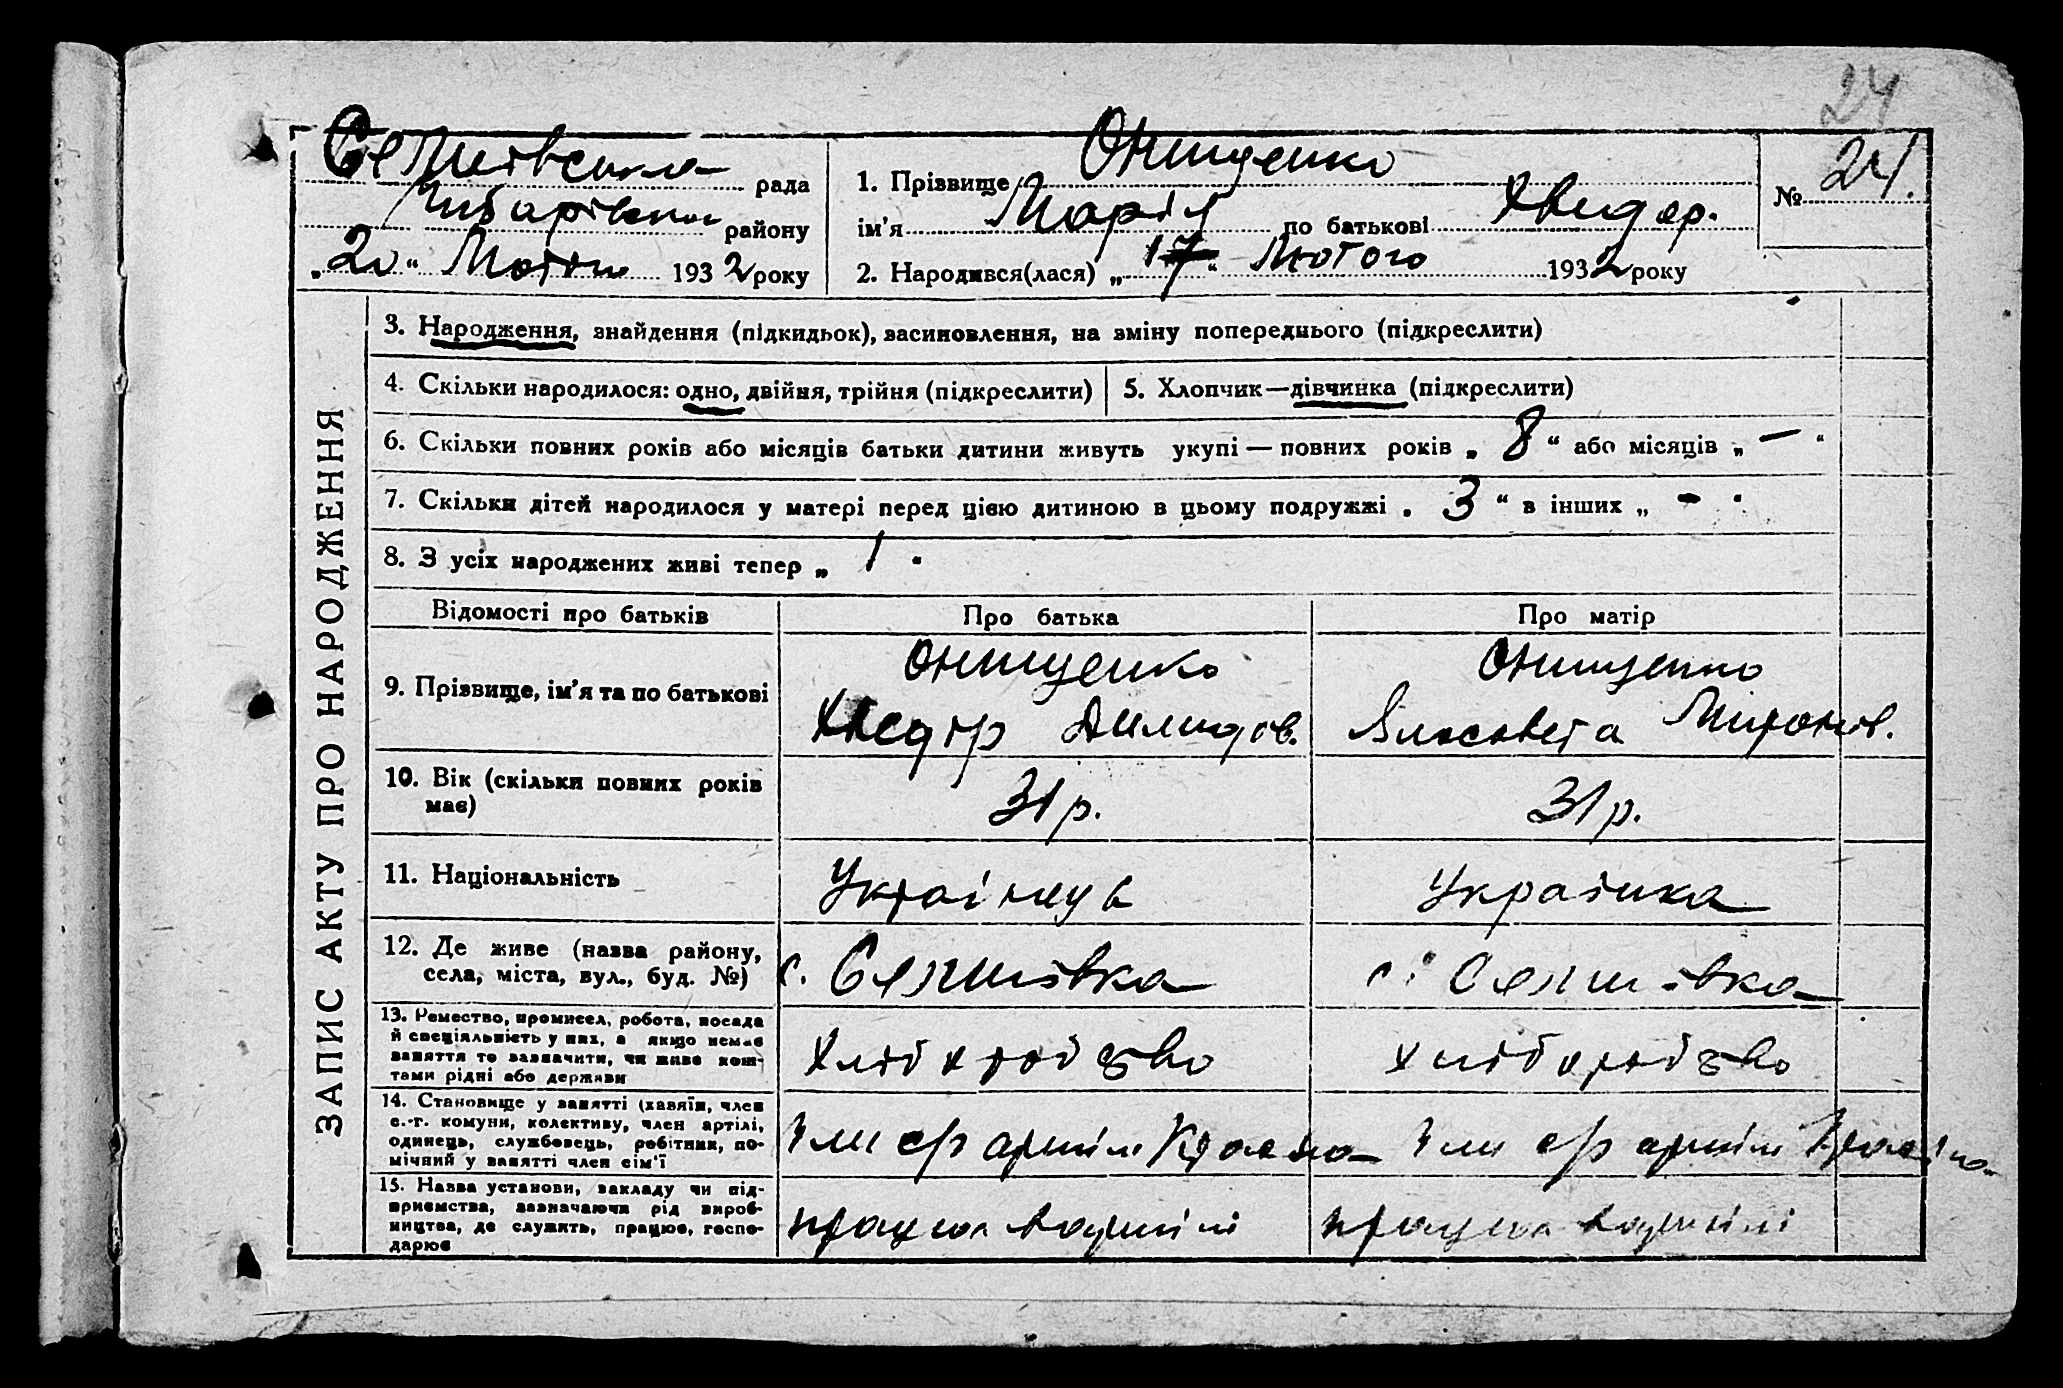 24
Семиївська рада
району
„20“ Лютого 1932 року
1. Прізвище Онищенко
ім'я Марія по батькові Хведор.
2. Народився(лася) „17“ Лютого 1932 року
№ 24.
ЗАПИС АКТУ ПРО НАРОДЖЕННЯ
3. Народження, знайдення (підкидьок), васиновлення, на зміну попереднього (підкреслити)
4. Скільки народилося: одно, двійня, трійня (підкреслити)
5. Хлопчик—дівчинка (підкреслити)
6. Скільки повних років або місяців батьки дитини живуть укупі — повних років „ 8 “ або місяців „ — “
7. Скільки дітей народилося у матері перед цією дитиною в цьому подружжі „ 3 “ в інших „ - “
8. З усіх народжених живі тепер „ 1 “
Відомості про батьків Про батька Про матір
9. Прізвище, ім'я та по батькові
Онищенко
Хведір Демидов.
Онищенко
Єлисовета Миронів.
10. Вік (скільки повних років
має)
31 р.
31 р.
11. Національність
Українець
Українка
12. Де живе (назва району,
села, міста, вул., буд. №)
с.
с.
13. Ремество, промисел, робота, посада
й спеціяльність у них, а якщо немає
заняття то зазначити, чи живе кош-
тами рідні або держави
Хліборобство
хліборобство
14. Становище у занятті (хазяїн, член
с.-г. комуни, колективу, член артілі,
одинець, службовець, робітник, по-
мічний у занятті член сім'ї
Член с/г артілі
Член с/г артілі
15. Назва установи, закладу чи під-
приємства, зазначаючи рід вироб-
ництва, де служить, працює, госпо-
дарює
працює в артілі
працює в артілі